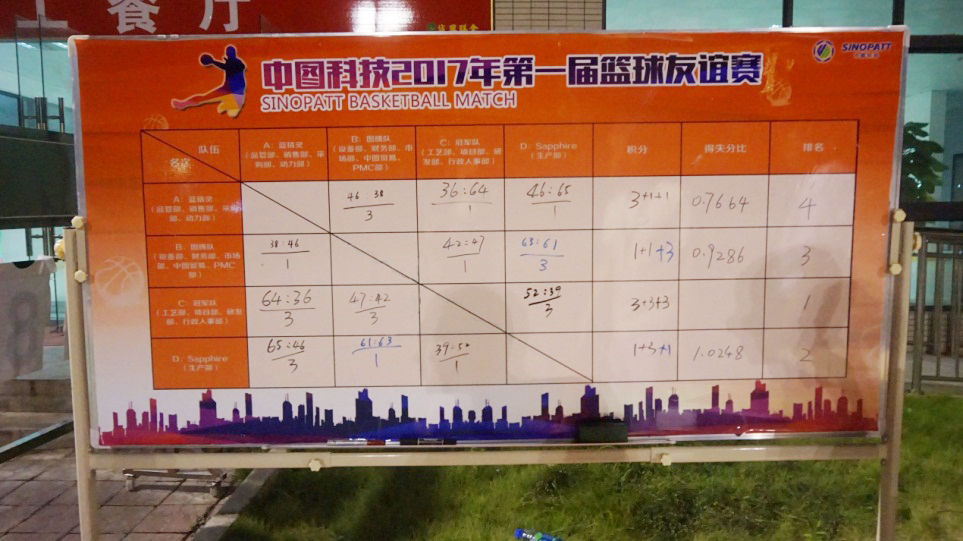 工餐厅
中图科技2017年第一届篮球友谊赛
SINOPATT BASKETBALL MATCH
SINOPATT
队伍
名次
A: 蓝精灵
(品管部、销售部、采
购部、动力部)
B: 图腾队
(设备部、财务部、市
场部、中图贸易、
PMC部)
C: 冠军队
(工艺部、项目部、研
发部、行政人事部)
D: Sapphire
(生产部)
积分
得失分比
排名
A: 蓝精灵
(品管部、销售部、采购
部、动力部)
46:38
3
36:64
1
46:65
1
3+1+1
0.7664
4
B: 图腾队
(设备部、财务部、市场
部、中图贸易、PMC
部)
38:46
1
42:47
1
63:61
3
1+1+3
0.9286
3
C: 冠军队
(工艺部、项目部、研发
部、行政人事部)
64:36
3
47:42
3
3
3+3+3
1
D: Sapphire
(生产部)
65:46
3
61:63
1
1
1+3+1
1.0248
2